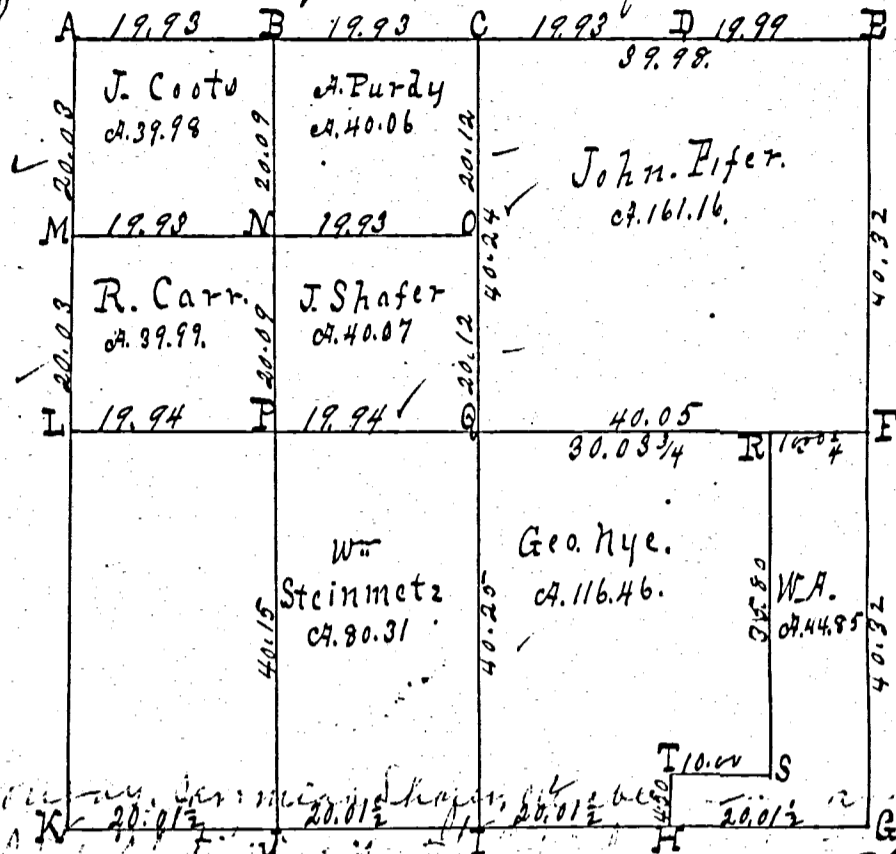 A 19.93 B 19.93 C 19.93 D 19.99 E
39.98.
J. Coots
A. 39.98
A. Purdy
A. 40.06
John. Pifer.
A. 161.16.
20.03
20.09
20.12
40.24
40.32
M 19.93 N 19.93 O
R. Carr.
A. 39.99.
J. Shafer
A. 40.07
20.03
20.09
20.12
L 19.94 P 19.94 Q 40.05 F
30.03 3/4 R
Wm
Steinmetz
A. 80.31
Geo. Nye.
A. 116.46.
W.A.
A. 44.85
40.15
40.25
35.80
40.32
T 10.00 S
4.50
K 20.01 1/2 20.01 1/2 I 20.01 1/2 H 20.01 1/2 G